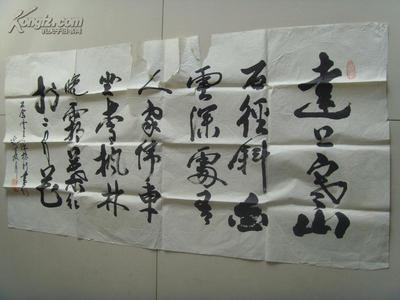 Kongfz.com
遠上寒山
石徑斜白
雲深處有
人家停車
坐愛楓林
晚霜葉紅
於二月花